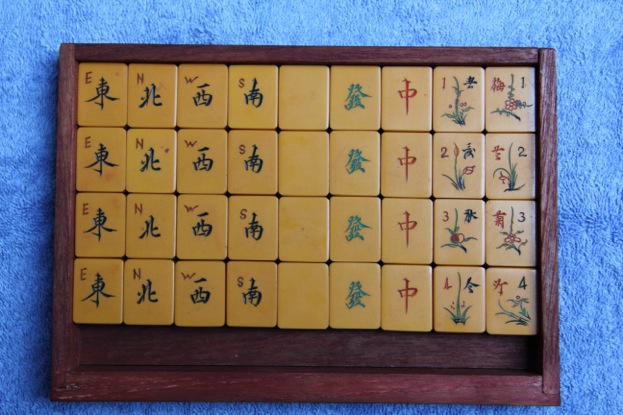 E 東 N 北 W 西 S 南 發 中 1 梅 1
E 東 N 北 W 西 S 南 發 中 2 2
E 東 N 北 W 西 S 南 發 中 3 菊 3
E 東 N 北 W 西 S 南 發 中 4 竹 4